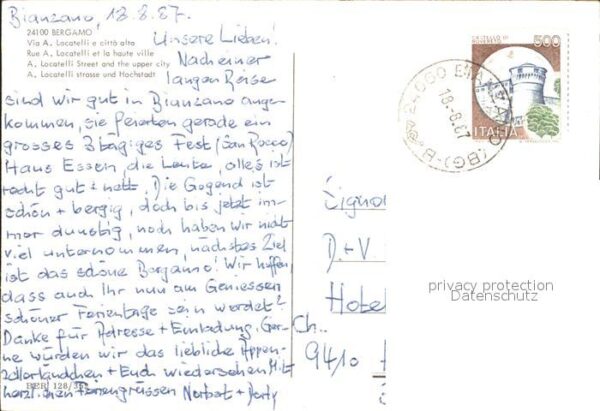 Bianzano, 18.8.87.
24100 BERGAMO
Via A. Locatelli e città alta
Rue A. Locatelli et la haute ville
A. Locatelli Street and the upper city
A. Locatelli strasse und Hochstadt
Unsere Lieben!
Nach einer
langen Reise
sind wir gut in Bianzano ange-
kommen, sie feierten gerade ein
grosses 3tägiges Fest (San Rocco)
Haus Essen, die Leute, alles ist
recht gut + nett. Die Gegend ist
schön + bergig, doch bis jetzt im-
mer dunstig, noch haben wir nicht
viel unternommen, nächstes Ziel
ist das schöne Bergamo! Wir hoffen,
dass auch Ihr nun am Geniessen
schöner Ferientage sein werdet?
Danke für Adresse + Einladung. Ger-
ne würden wir das liebliche Appen-
zellerländchen + Euch wiedersehen! Mit
herzlichen Feriengrüssen Norbert +
BER 128/35
CASTELLO DI
ROVERETO
500
ITALIA
24060 BIANZANO (BG)
18-8.87
Signo
D. + V
Hote
Ch..
9410
privacy protection
Datenschutz